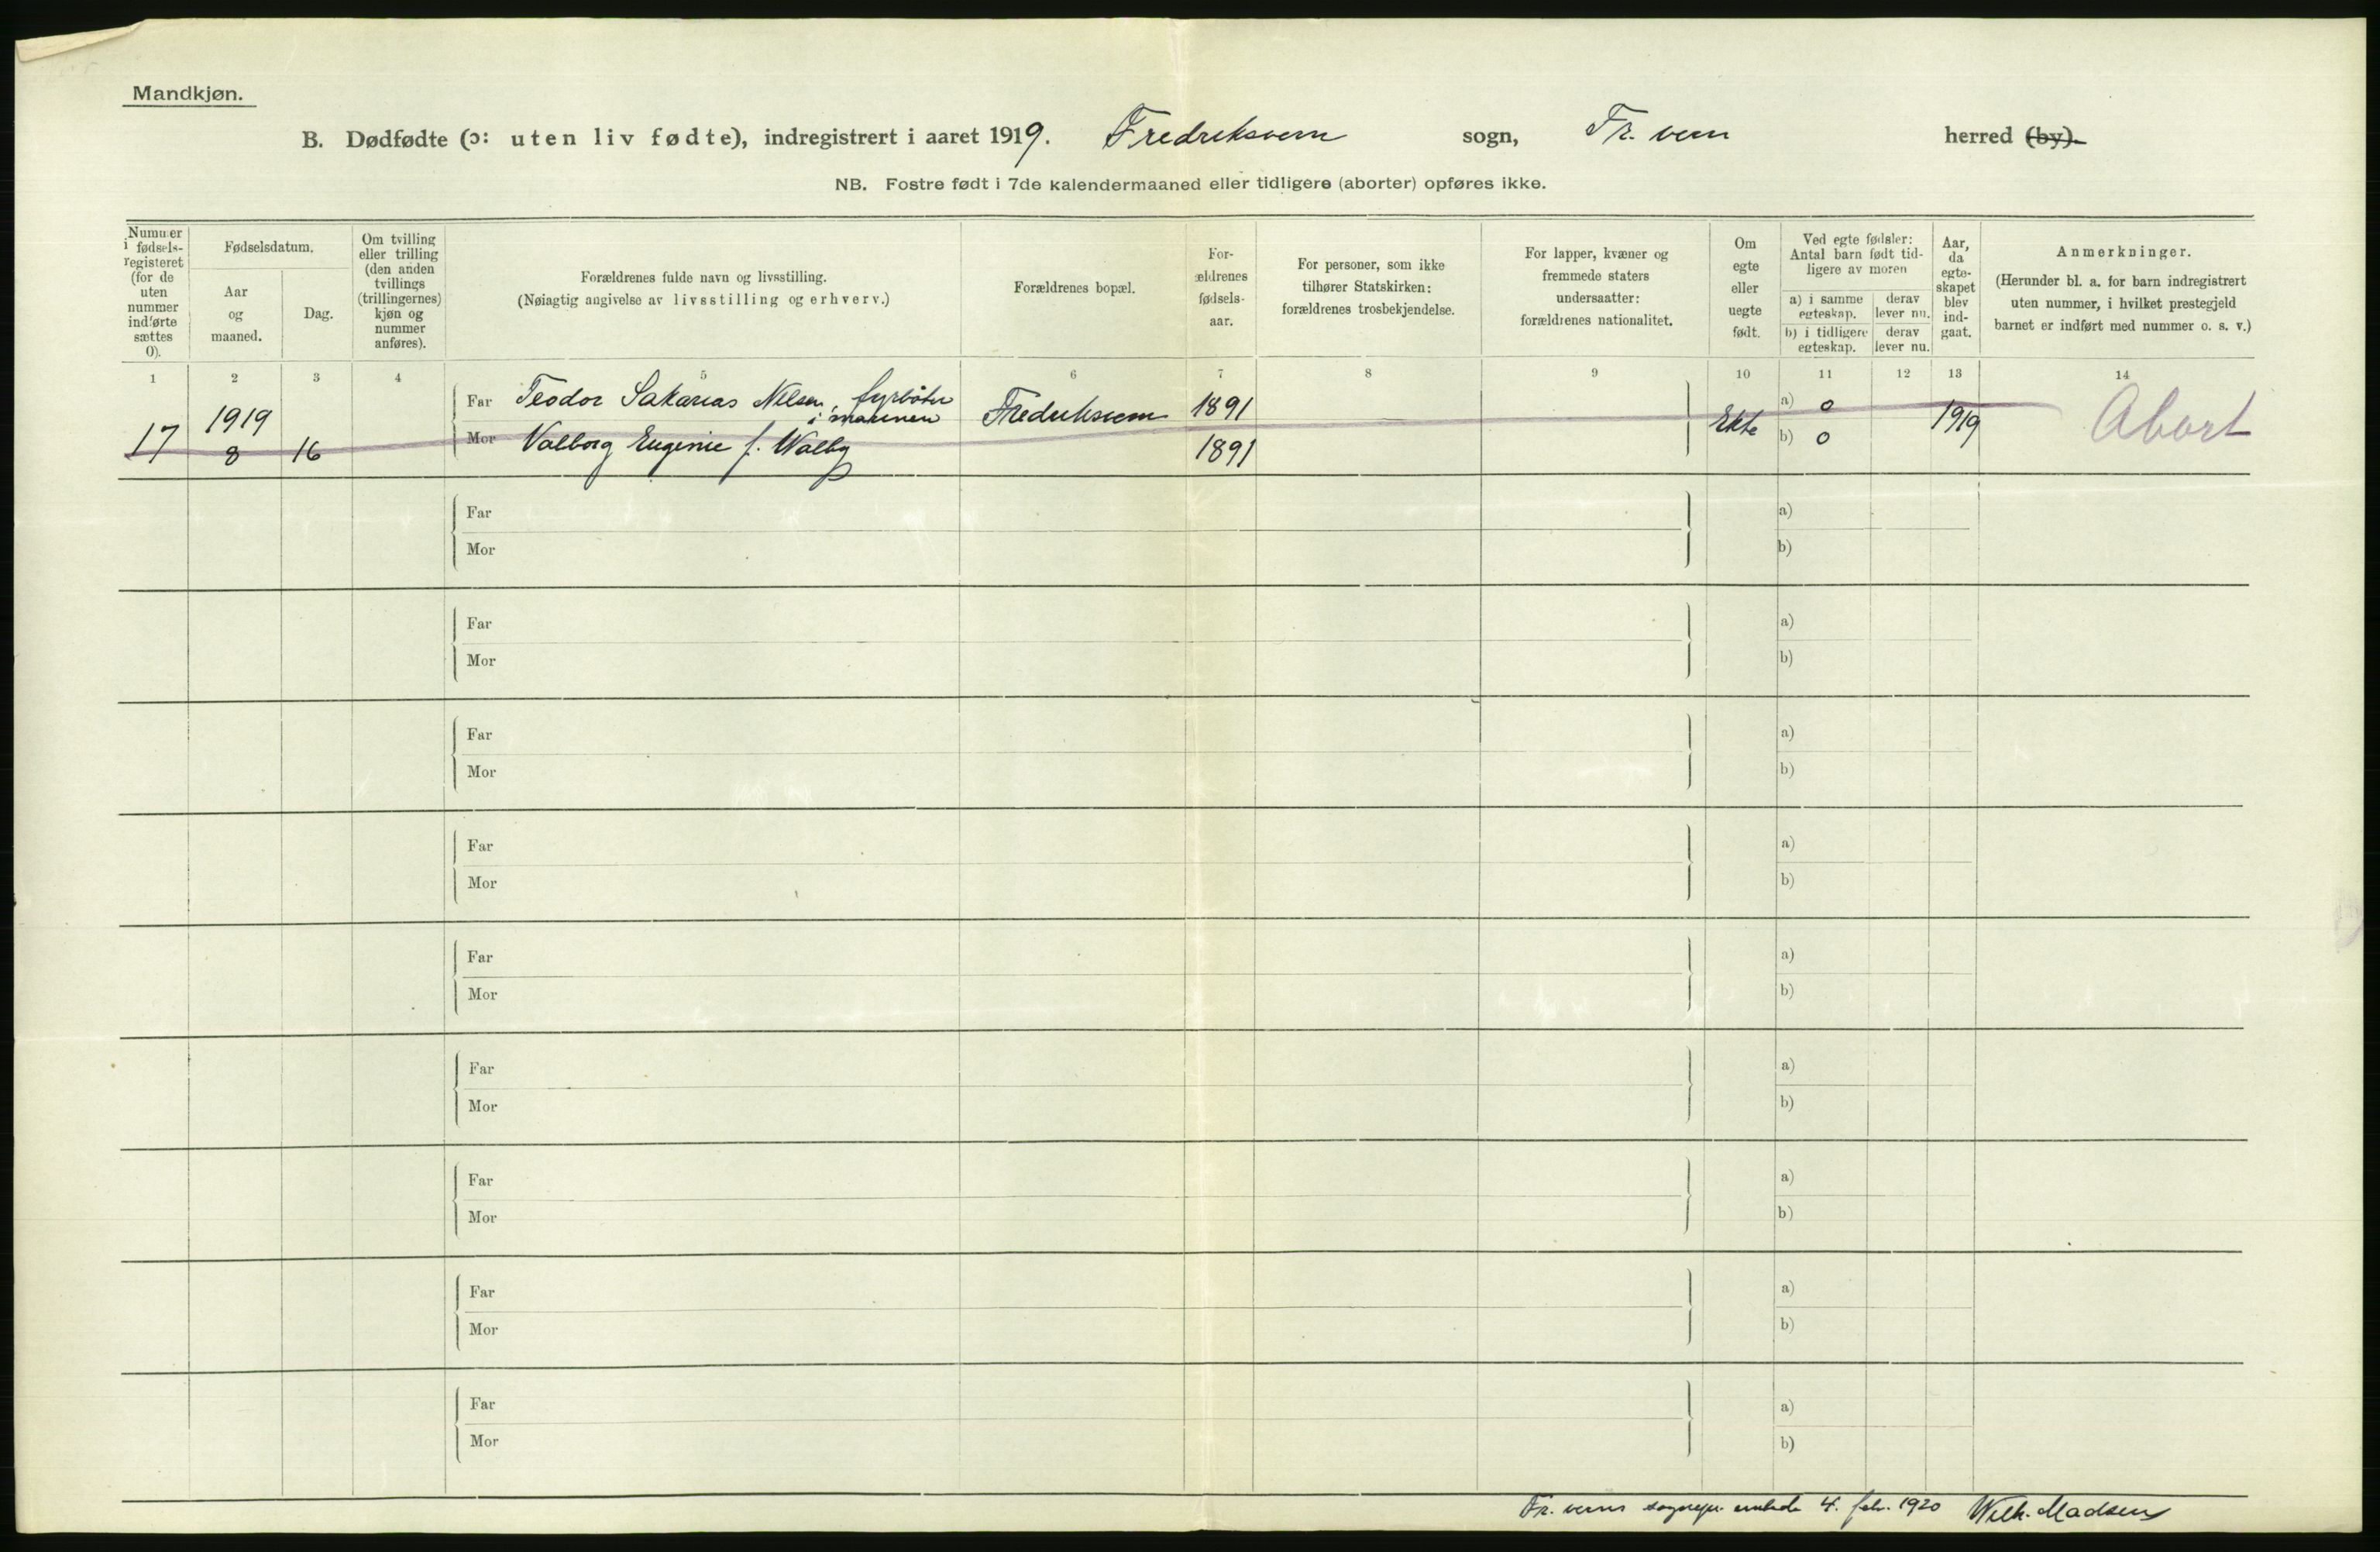 Mandkjøn.
B. Dødfødte (ɔ: uten liv fødte), indregistrert i aaret 1919. Fredriksvern sogn, Fr. vern herred (by).
NB. Fostre født i 7de kalendermaaned eller tidligere (aborter) opføres ikke.
Nummer
i fødsels-
registeret
(for de
uten
nummer
indførte
sættes
0).
Fødselsdatum.
Aar
og
maaned.
Dag.
Om tvilling
eller trilling
(den anden
tvillings
(trillingernes)
kjøn og
nummer
anføres).
Forældrenes fulde navn og livsstilling.
(Nøiagtig angivelse av livsstilling og erhverv.)
Forældrenes bopæl.
For-
ældrenes
fødsels-
aar.
For personer, som ikke
tilhører Statskirken:
forældrenes trosbekjendelse.
For lapper, kvæner og
fremmede staters
undersaatter:
forældrenes nationalitet.
Om
egte
eller
uegte
født.
Ved egte fødsler:
Antal barn født tid-
ligere av moren
a) i samme
egteskap.
derav
lever nu.
b) i tidligere
egteskap.
derav
lever nu.
Aar,
da
egte-
skapet
blev
ind-
gaat.
Anmerkninger.
(Herunder bl. a. for barn indregistrert
uten nummer, i hvilket prestegjeld
barnet er indført med nummer o. s. v.)
1 2 3 4 5 6 7 8 9 10 11 12 13 14
17 1919 8 16
Far Teodor Sakarias Nilsen, fyrbøter
i marinen
Fredriksvern 1891
Mor Valborg Eugenie f. Walby 1891
Ekte a) 0 b) 0 1919 Abort
Far a)
Mor b)
Far a)
Mor b)
Far a)
Mor b)
Far a)
Mor b)
Far a)
Mor b)
Far a)
Mor b)
Far a)
Mor b)
Far a)
Mor b)
Far a)
Mor b)
Fr. verns sognepr. embede 4. feb. 1920 Wilh. Madsen